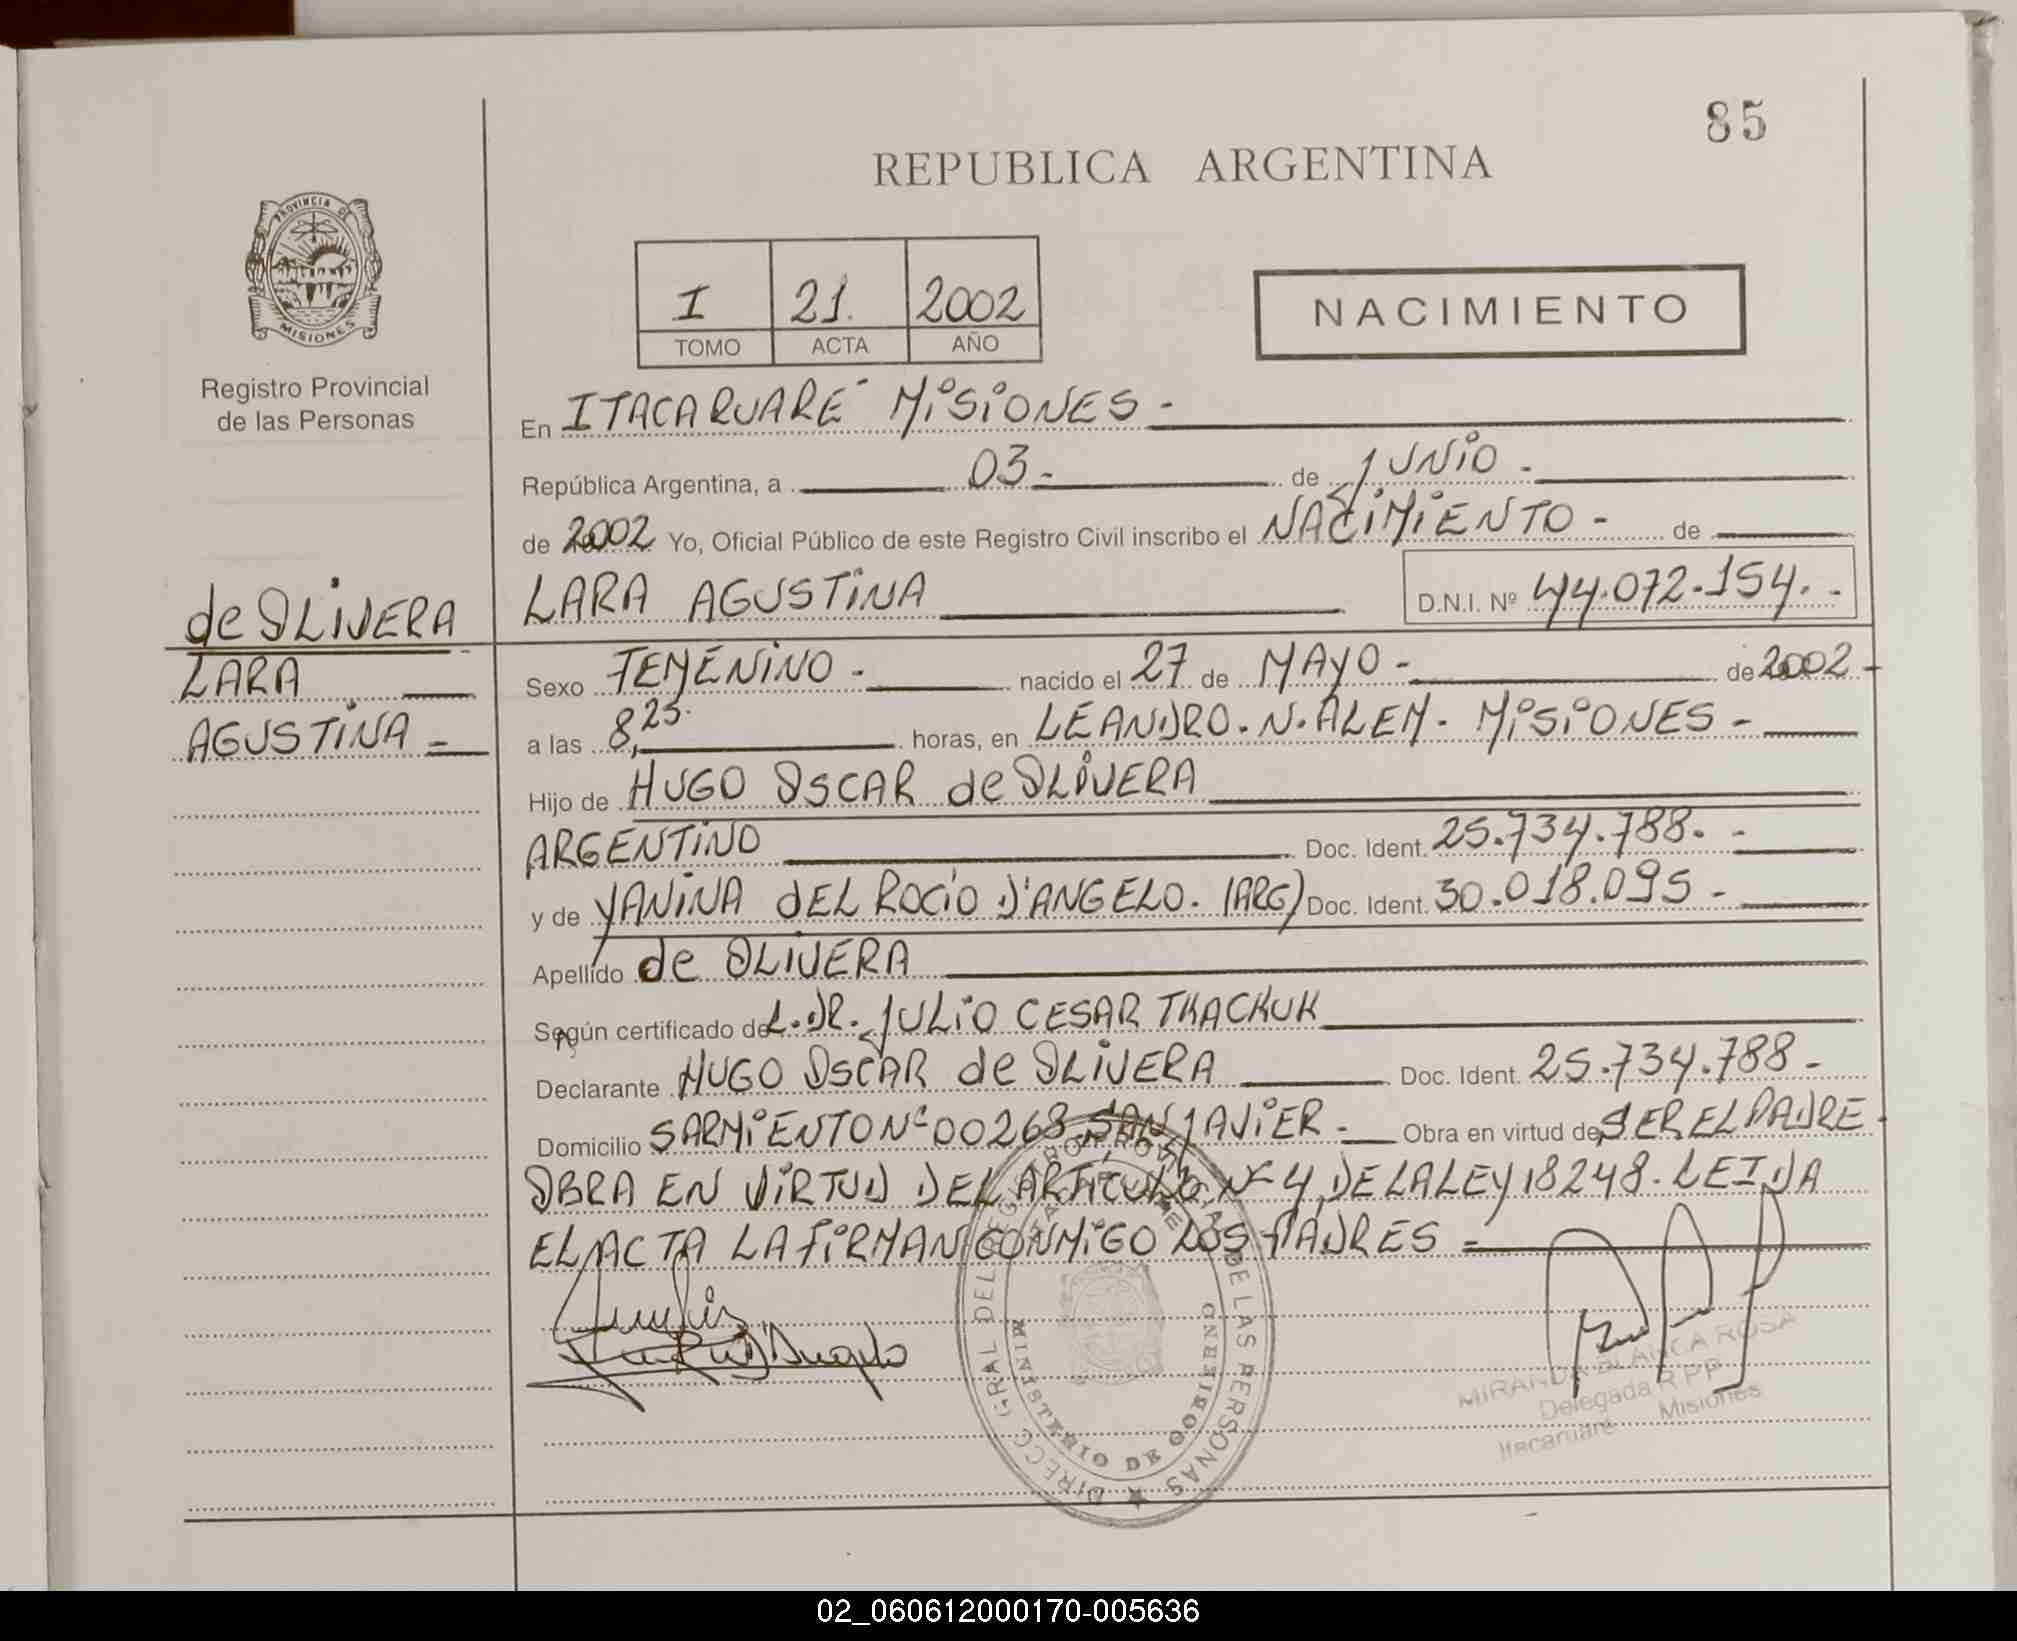 85
REPUBLICA ARGENTINA
PROVINCIA DE
MISIONES
Registro Provincial
de las Personas
I 21. 2002
TOMO ACTA AÑO
NACIMIENTO
En ITACARUARE MiSiONES -
República Argentina, a 03 - de JUNiO -
de 2002 Yo, Oficial Público de este Registro Civil inscribo el NACiMiENTO - de
LARA AGUSTiNA D.N.I. Nº 44.072.154. -
de OLIVERA
LARA
AGUSTiNA =
Sexo FEMENiNO - nacido el 27 de MAYO - de 2002 -
a las 8,25. horas, en LEANDRO. N. ALEM - MiSiONES -
Hijo de HUGO OSCAR de OLiVERA
ARGENTiNO Doc. Ident. 25.734.788. -
y de YANiNA dEL ROCiO D'ANGELO. (ARG) Doc. Ident. 30.018.095 -
Apellido de OLiVERA
Según certificado de L. DR. JULiO CESAR TKACHUK
Declarante HUGO OSCAR de OLiVERA Doc. Ident. 25.734.788 -
Domicilio SARMiENTO Nº 00268 SAN JAViER - Obra en virtud de SER EL PADRE -
OBRA EN ViRTUD DEL ARTiCULO Nº 4, DE LA LEY 18248. LEIDA
EL ACTA LA FiRMAN CONMiGO LOS PADRES =
D'Angelo
DIRECC GRAL DEL REGISTRO PROVINCIAL DE LAS PERSONAS
MINISTERIO DE GOBIERNO
MIRANDA BLANCA ROSA
Delegada R P P
Itacaruare Misiones
02_060612000170-005636